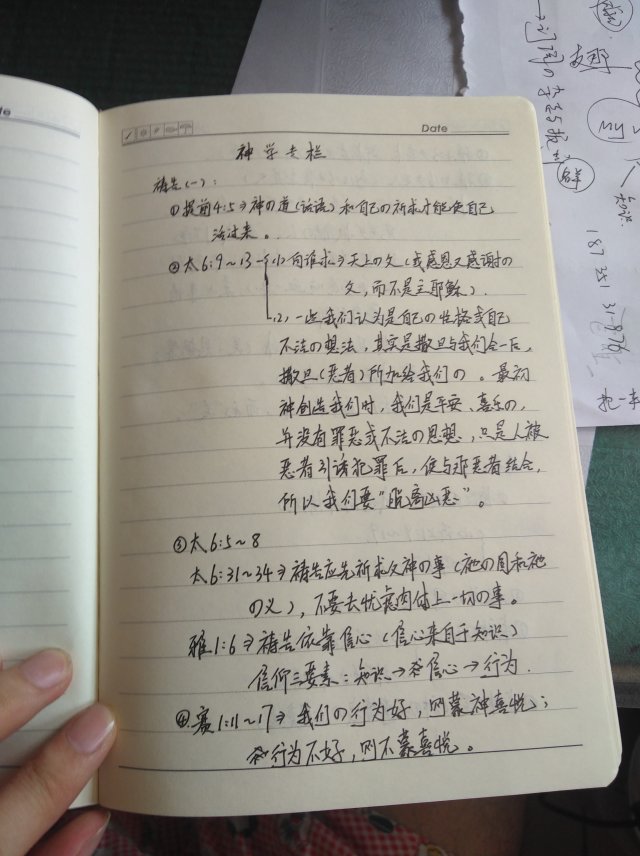 Date
神学专栏
祷告(一):
①提前4:5⇒神の道(话语)和自己の祈求才能使自己
活过来。
②太6:9~13 (1)向谁求⇒天上の父(或感恩又感谢の
父,而不是主耶稣).
(2),一些我们认为是自己の性格或自己
不洁の想法,其实是撒旦与我们合一后,
撒旦(恶者)所加给我们の。最初
神创造我们时,我们是平安、喜乐の,
并没有罪恶或不洁の思想,只是人被
恶者引诱犯罪后,便与那恶者结合,
所以我们要"脱离凶恶"。
③太6:5~8
太6:31~34⇒祷告应先祈求父神の事(祂の国和祂
の义),不要去忧虑肉体上一切の事。
雅1:6⇒祷告依靠信心(信心来自于知识)
信仰三要素:知识→信心→行为.
④赛1:11~17⇒我们の行为好,则蒙神喜悦;
行为不好,则不蒙喜悦。
知识
187 351 31876
把一本